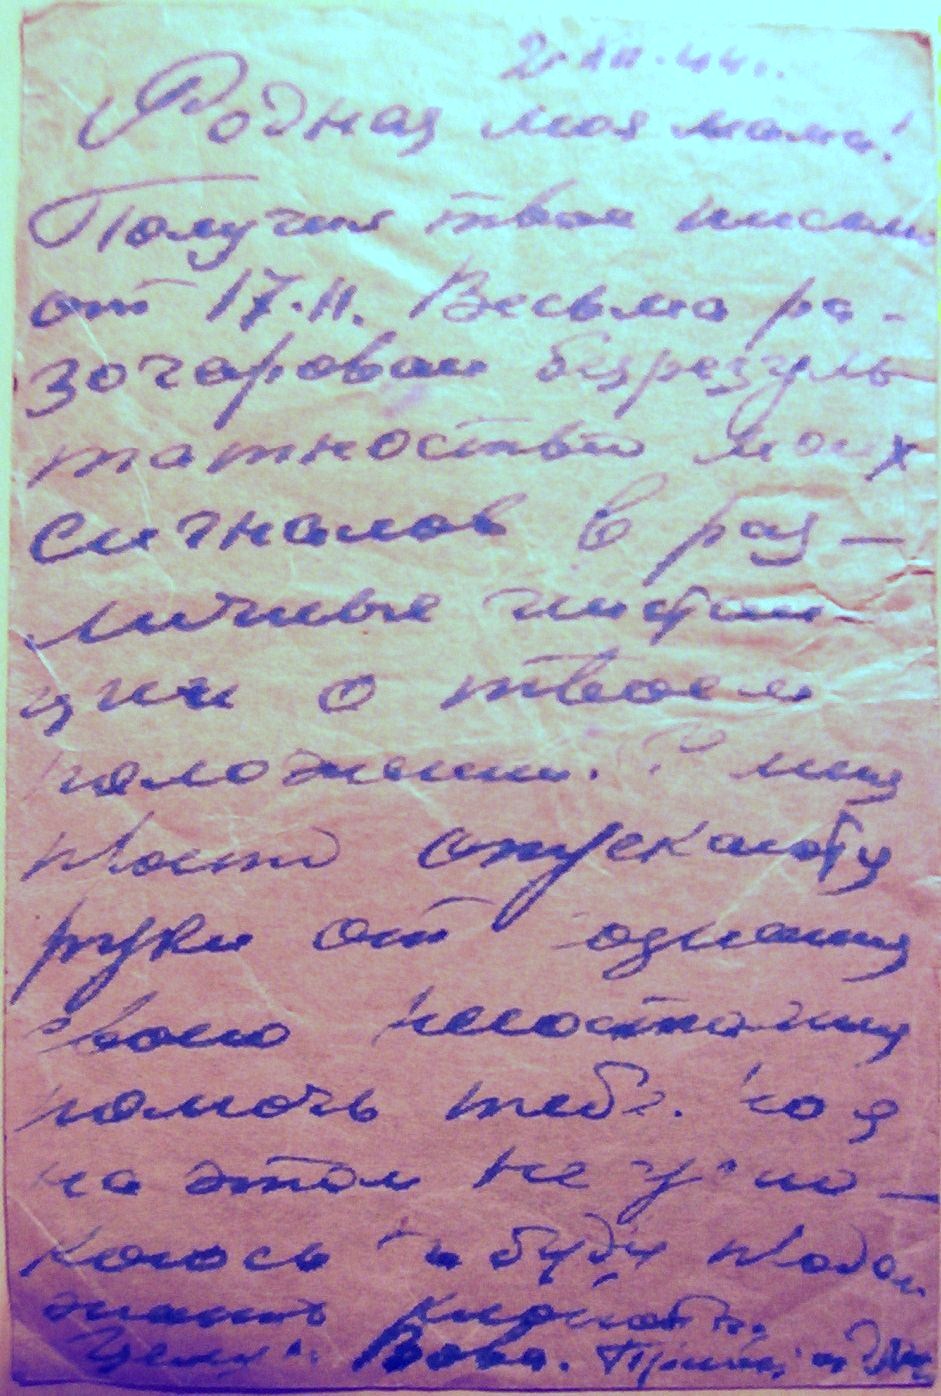 2.XII.44 г.
Родная моя мама!
Получил твоё письмо
от 17.II. Весьма ра-
зочарован безрезуль
татностью моих
сигналов в раз-
личные инстан
ции о твоем
положении. У меня
просто опускаются
руки от сознания
своего
помочь тебе. Но я
на этом не успо-
коюсь и буду продол
жать
Целую. Вова. Привет